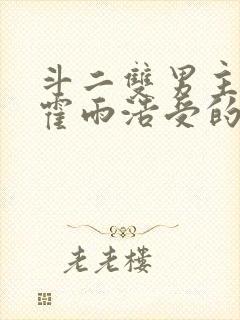 斗二雙男主
霍雨浩受的
老老樓